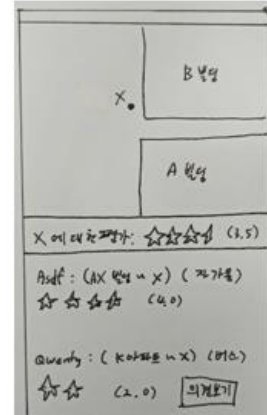 B 빌딩
X
A 빌딩
X 에 대한 평가: (3.5)
Asdf : (AX 빌딩 ~ X) (자가용)
(4.0)
Qwerty : (K아파트 ~ X) (버스)
(2.0) 의견보기